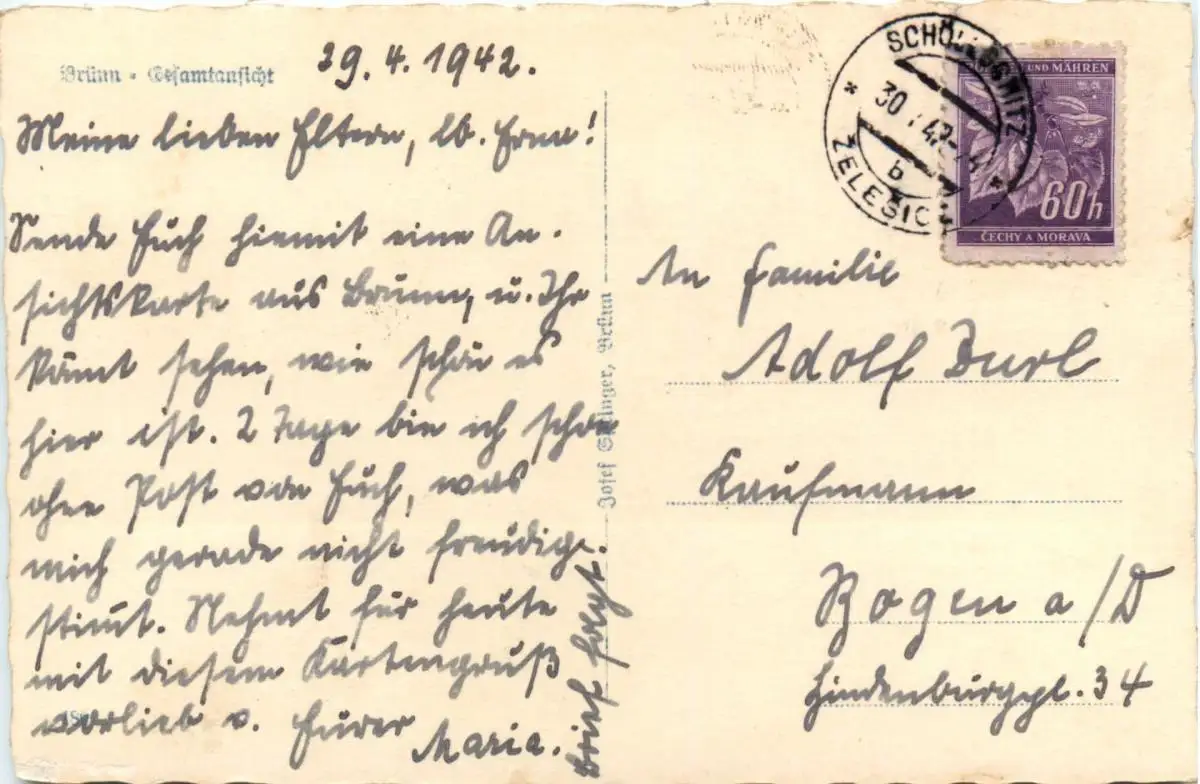 Brünn - Gesamtansicht
29.4.1942.
Meine lieben Eltern, lb. Erna!
Sende Euch hiemit eine An-
sichtskarte aus Brünn, u. Ihr
könnt sehen, wie schön es
hier ist. 2 Tage bin ich schon
ohne Post von Euch, was
mich gerade nicht freudig
stimmt. Nehmt für heute
mit diesem Kartengruß
vorlieb v. Eurer
Maria.
Brief folgt
Josef Springer, Brünn
SCHÖLLSCHNITZ
30
b
ŽELEŠICE
UND MÄHREN
60h
ČECHY A MORAVA
An Familie
Adolf Durl
Kaufmann
Bogen a/D
Hindenburgpl. 34